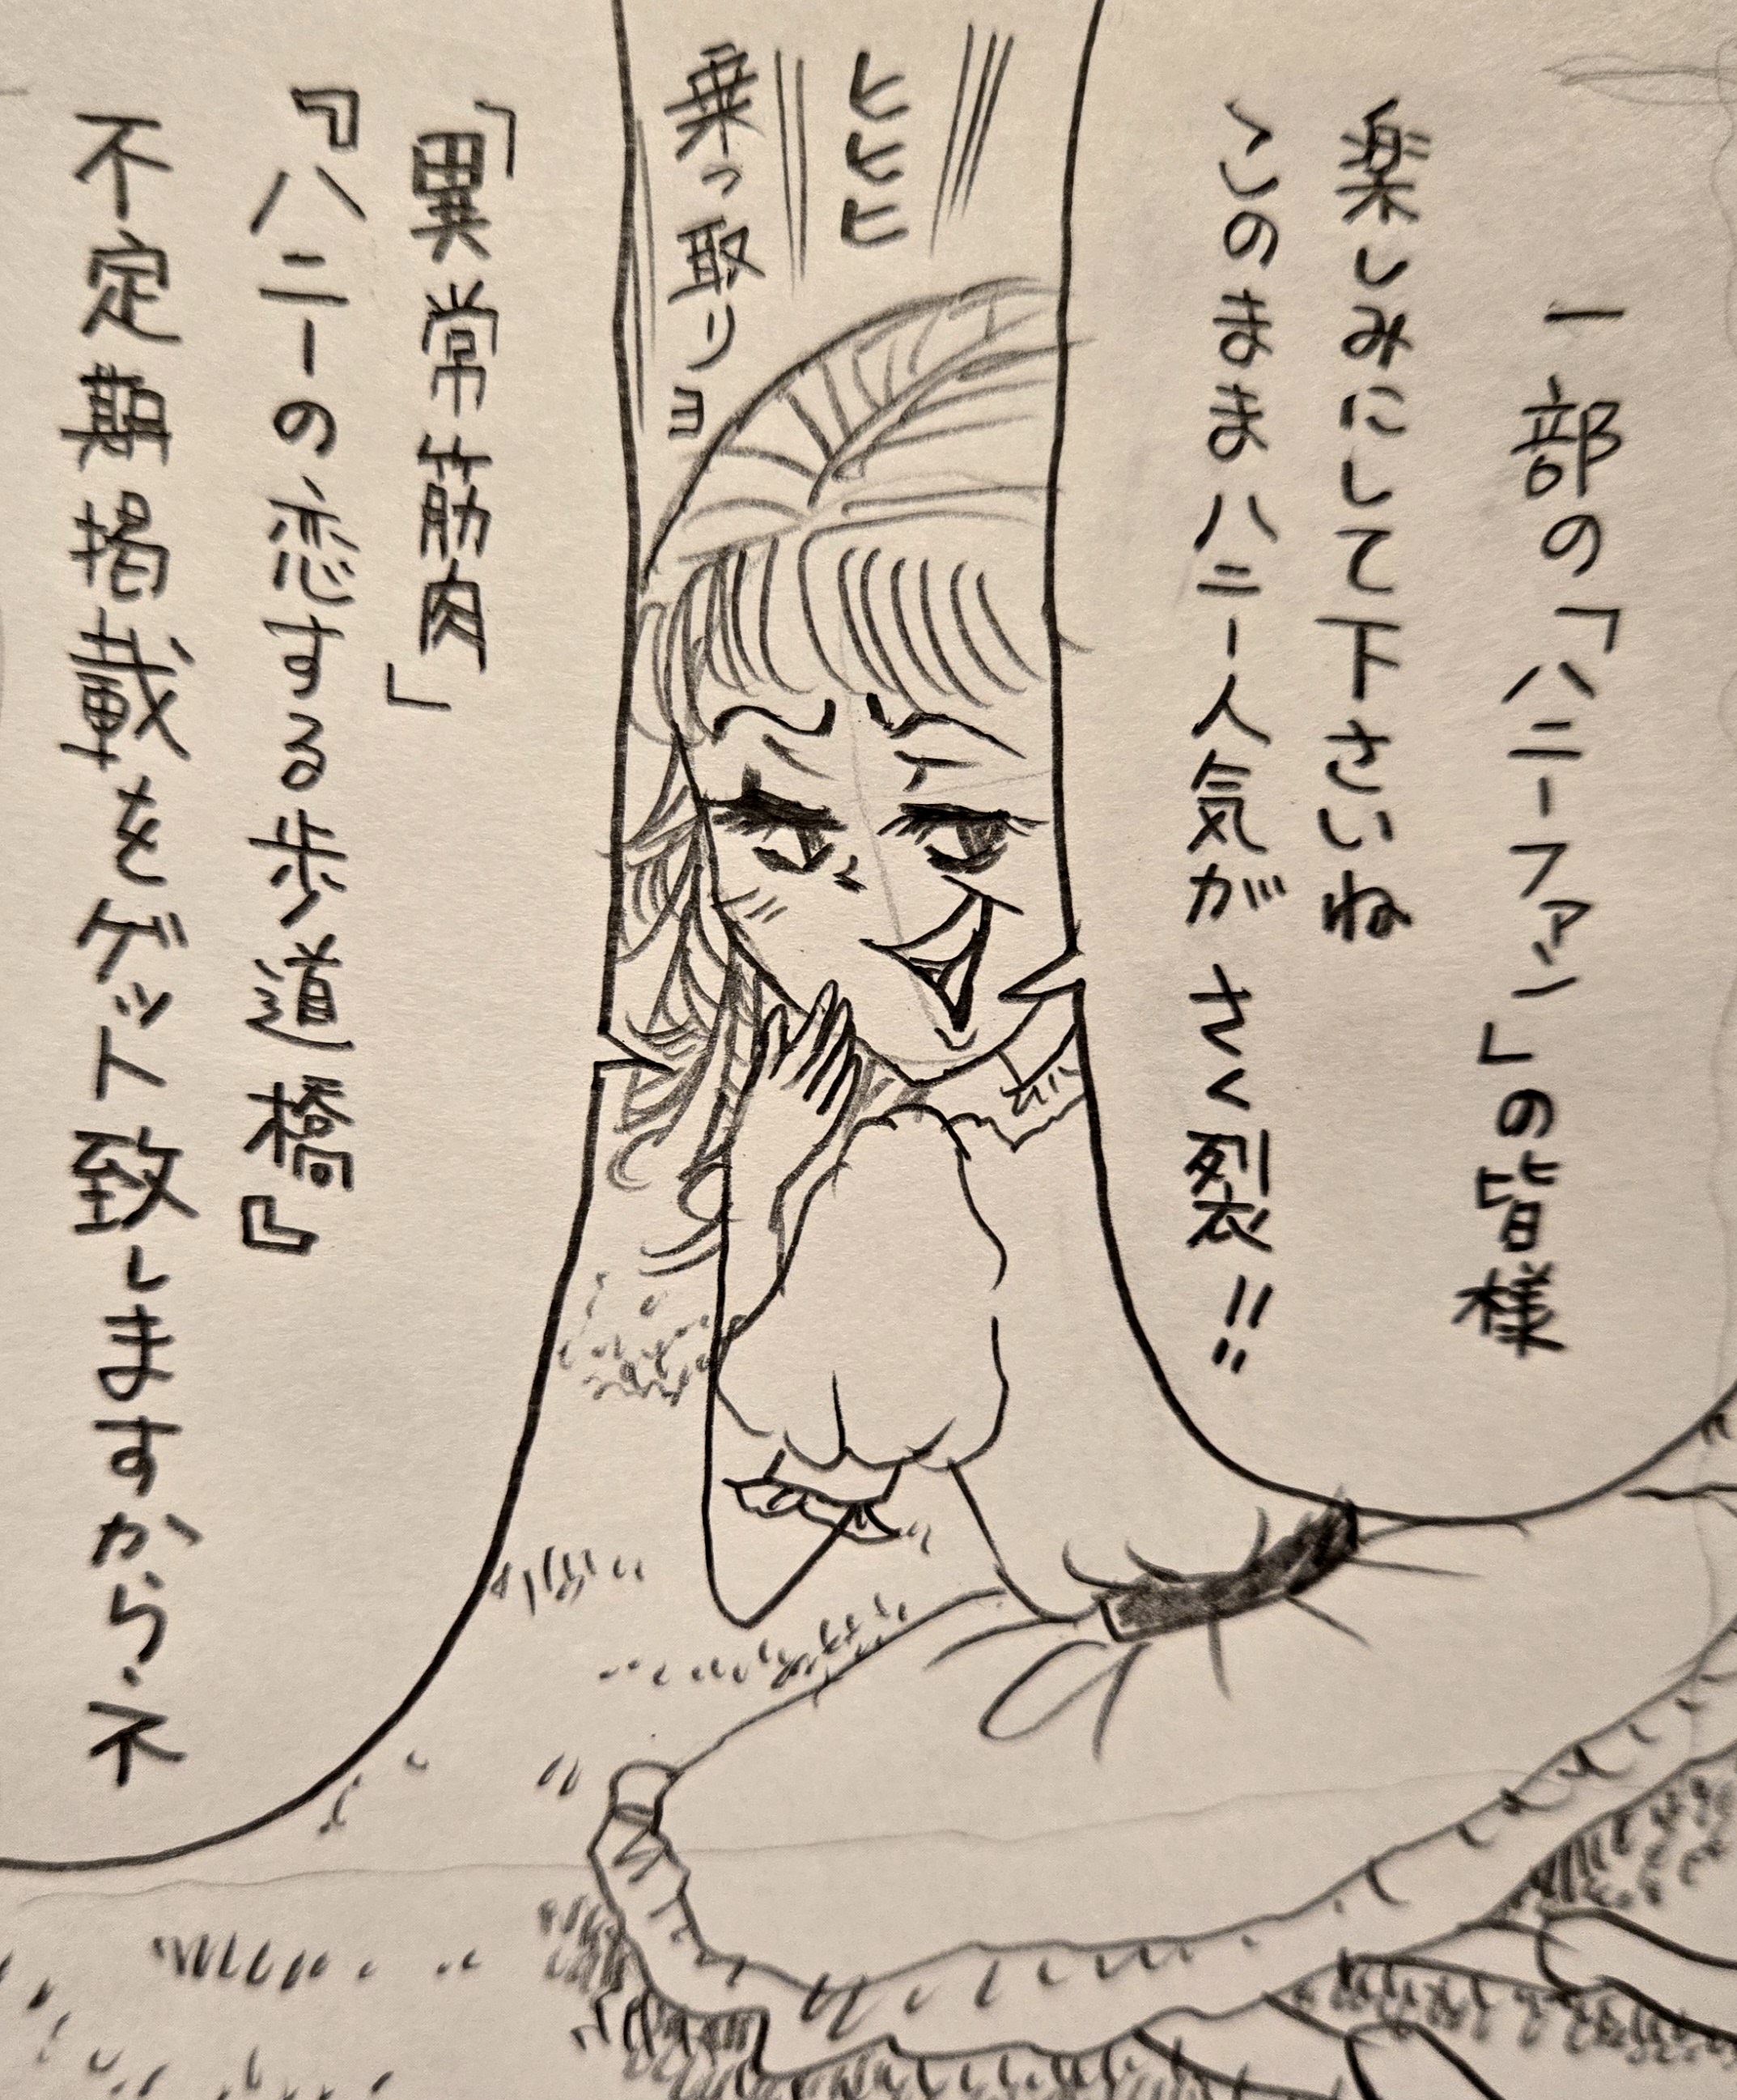 一部の「ハニーファン」の皆様
楽しみにして下さいね
このままハニー人気が さく裂!!
ヒヒヒ
乗っ取りヨ
「異常筋肉」
『ハニーの恋する歩道橋』
不定期掲載をゲット致しますから、ネ